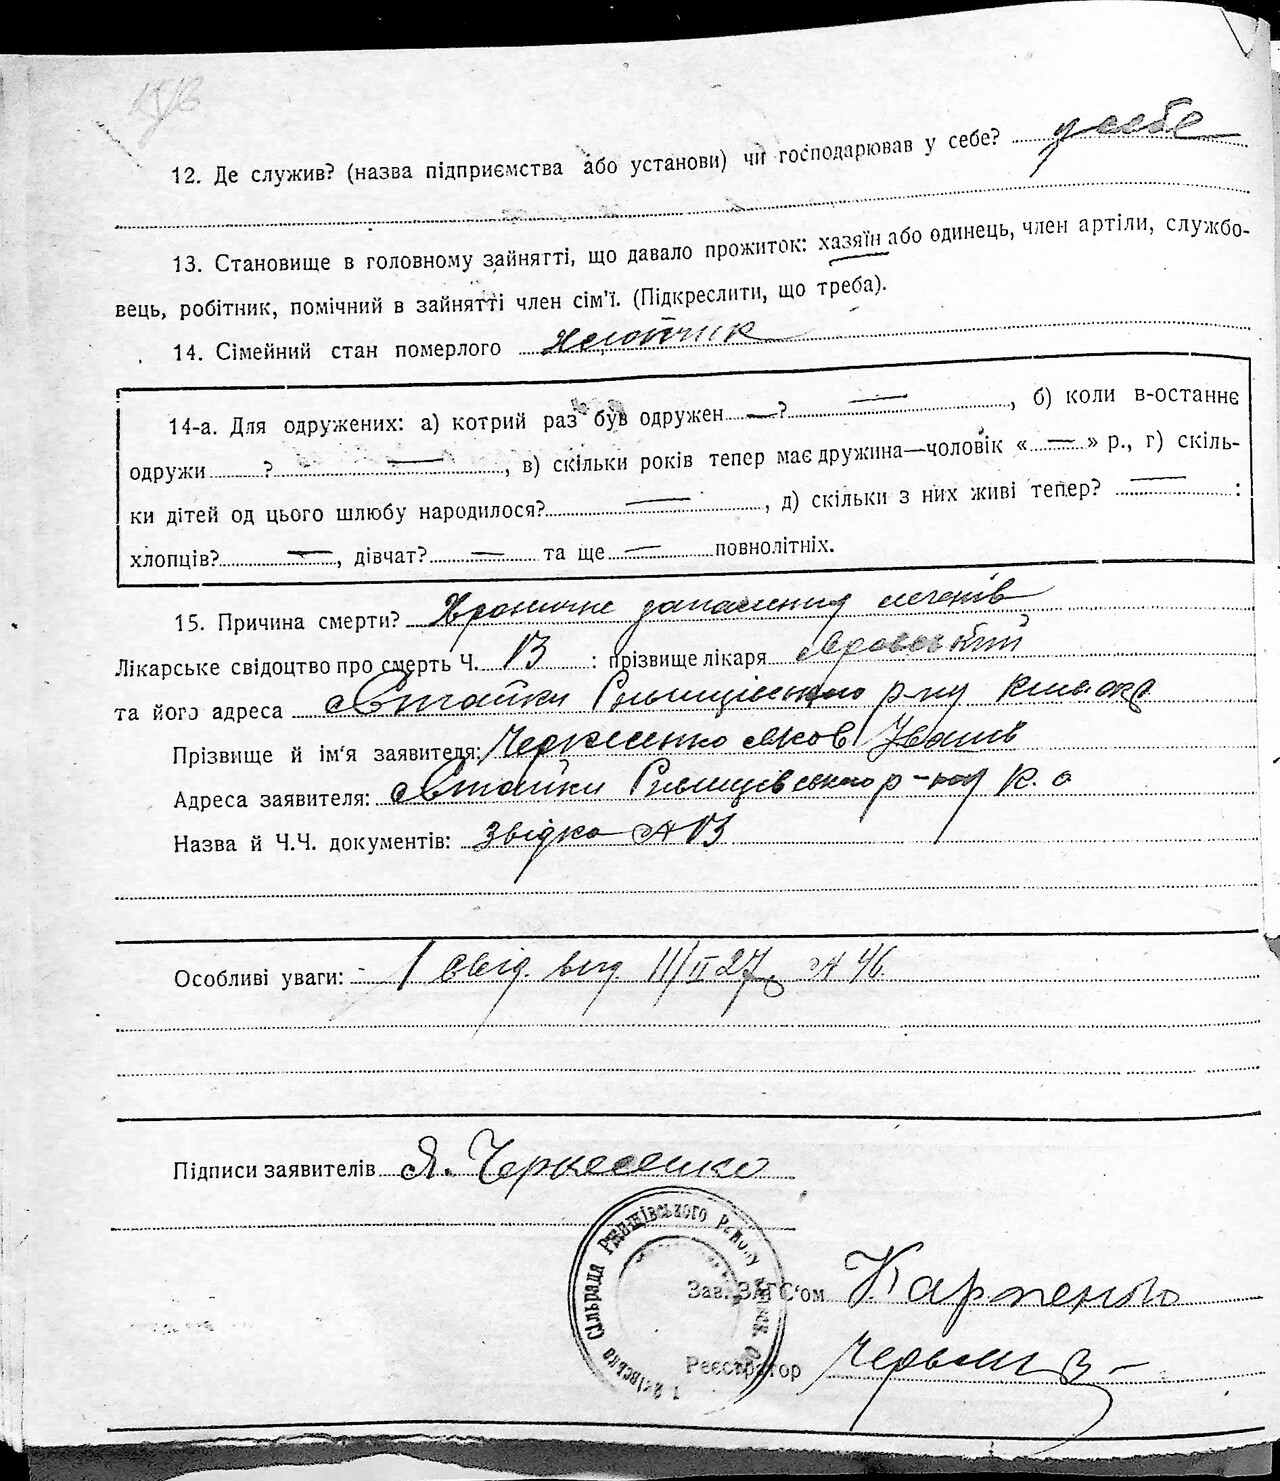 12. Де служив? (назва підприємства або установи) чи господарював у себе? у себе
13. Становище в головному зайнятті, що давало прожиток: хазяїн або одинець, член артіли, службо-
вець, робітник, помічний в зайнятті член сім'ї. (Підкреслити, що треба).
14. Сімейний стан померлого
14-а. Для одружених: а) котрий раз був одружен — ? —, б) коли в-останнє
одружи ? —, в) скільки років тепер має дружина—чоловік « — » р., г) скіль-
ки дітей од цього шлюбу народилося? —, д) скільки з них живі тепер? — :
хлопців? —, дівчат? — та ще — повнолітніх.
15. Причина смерти? Хроничне запалення легенів
Лікарське свідоцтво про смерть Ч. 13 : прізвище лікаря
та його адреса Стайки Ржищівського р-ну Київ окр
Прізвище й ім'я заявителя: Черкесенко Яков Іванів
Адреса заявителя: Стайки Ржищівського р-ну К. о
Назва й Ч.Ч. документів: Звідка № 13
Особливі уваги: Свід. вид. 11/II 27 р № 46
Підписи заявителів Я. Черкесенко
Сільрада Ржищівського Району
Зав. ЗАГС'ом Карпенко
Реєстратор